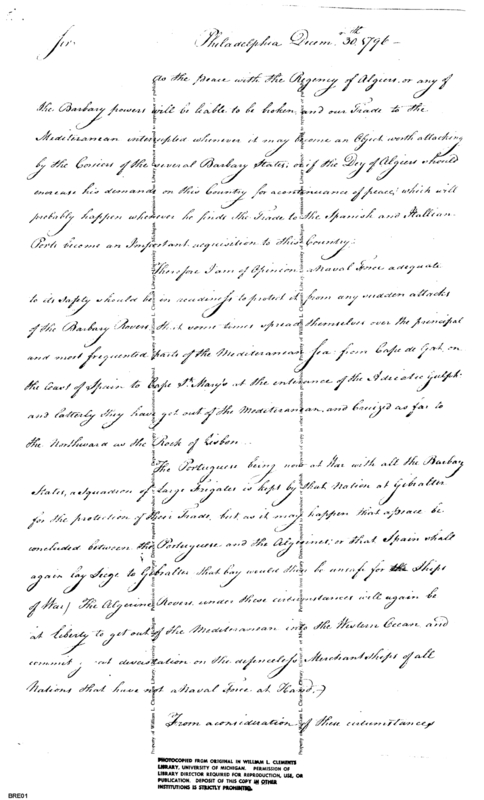 Sir. Philadelphia Decemr. 30th. 1796 —
As the peace with the Regency of Algiers, or any of
the Barbary powers will be liable to be broken, and our Trade to the
Mediteranean intercepted whenever it may become an Object worth attacking
by the Corsiers of the several Barbary States; or if the Dey of Algiers should
encrease his demands on this Country for a continuance of peace; which will
probably happen whenever he finds the Trade to the Spanish and Itallian
Ports become an Important acquisition to this Country.
Therefore I am of Opinion a Naval Force adequate
to its safety should be in readiness to protect it from any sudden attacks
of the Barbary Rovers that some times spread themselves over the principal
and most frequented parts of the Mediteranean Sea from Cape de Gat on
the Coast of Spain to Cape St. Mary's at the entrance of the Adriatic Gulph
and latterly they have got out of the Mediteranean, and cruized as far to
the Northward as the Rock of Lisbon.
The Portuguese being now at War with all the Barbary
States, a Squadron of large Frigates is kept by that Nation at Gibralter
for the protection of their Trade, but as it may happen that a peace be
concluded between the Portuguese and the Algerines; or that Spain shall
again lay Seige to Gibralter that bay would then be unsafe for Ships
of War) The Algerine Rovers under these circumstances will again be
at liberty to get out of the Mediteranean into the Western Ocean and
commit devastation on the defenceless Merchant Ships of all
Nations that have not a Naval Force at Hand.)
From a consideration of these circumstances
PHOTOCOPIED FROM ORIGINAL IN WILLIAM L. CLEMENTS
LIBRARY, UNIVERSITY OF MICHIGAN. PERMISSION OF
LIBRARY DIRECTOR REQUIRED FOR REPRODUCTION, USE, OR
PUBLICATION. DEPOSIT OF THIS COPY IN OTHER
INSTITUTIONS IS STRICTLY PROHIBITED.
BRE01